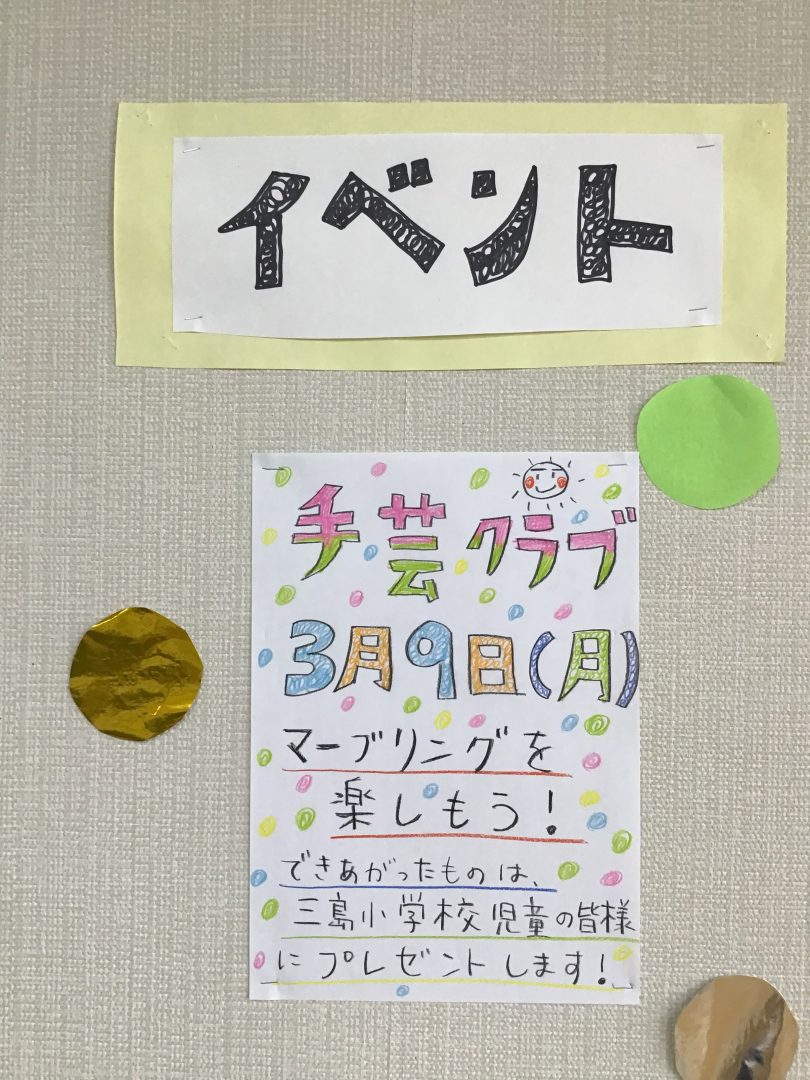 イベント
手芸クラブ
3月9日(月)
マーブリングを
楽しもう!
できあがったものは、
三島小学校児童の皆様
にプレゼントします!